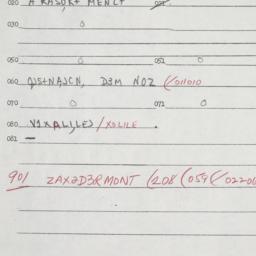 020 A RASOR+ MENCT 021
030 0
050 0 051 0
060 QJS+NAJCN, D3M NOZ (/011010
070 0 071 0
080 VIXALI,LES /XOLILE .
081 —
901 ZAX2D3RMONT (208 (059 (/02206